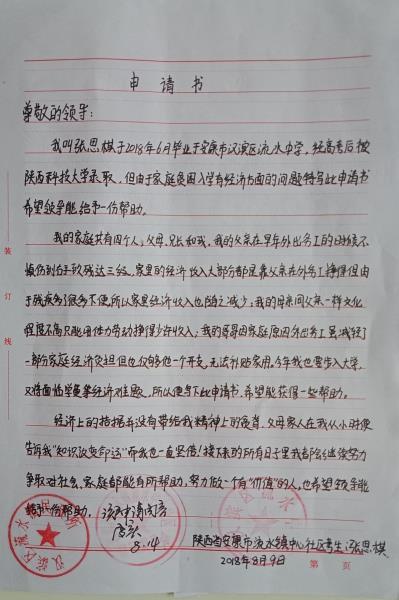 申请书
尊敬的领导：
我叫张思棋于2018年6月毕业于安康市汉滨区流水中学，经高考后被
陕西科技大学录取，但由于家庭贫困入学有经济方面的问题特写此申请书
希望领导能给予一份帮助。
我的家庭共有四个人：父母，兄长和我，我的父亲在早年外出务工的时候不
慎伤到右手致残达三级，家里的经济收入大部分都是靠父亲在外务工挣得但由
于残疾多了很多不便所以家里经济收入也随之减少；我的母亲同父亲一样文化
程度不高只能用体力劳动挣得少许收入；我的哥哥因家庭原因外出务工虽减轻了
一部分家庭经济负担但也仅够他一个开支，无法补贴家用，今年我也要步入大学，
又将面临学费等经济难题，所以便写下此申请书，希望能获得一些帮助。
经济上的拮据并没有带给我精神上的贫瘠，父母家人在我从小时便
告诉我"知识改变命运"而我也一直坚信！接下来的所有日子里我都会继续努力
争取对社会、家庭都能有所帮助，努力做一个有"价值"的人，也希望领导能
给予一份帮助。
8.14
陕西省安康市流水镇中心社区考生：张思棋
2018年8月9日
装订线
第 页